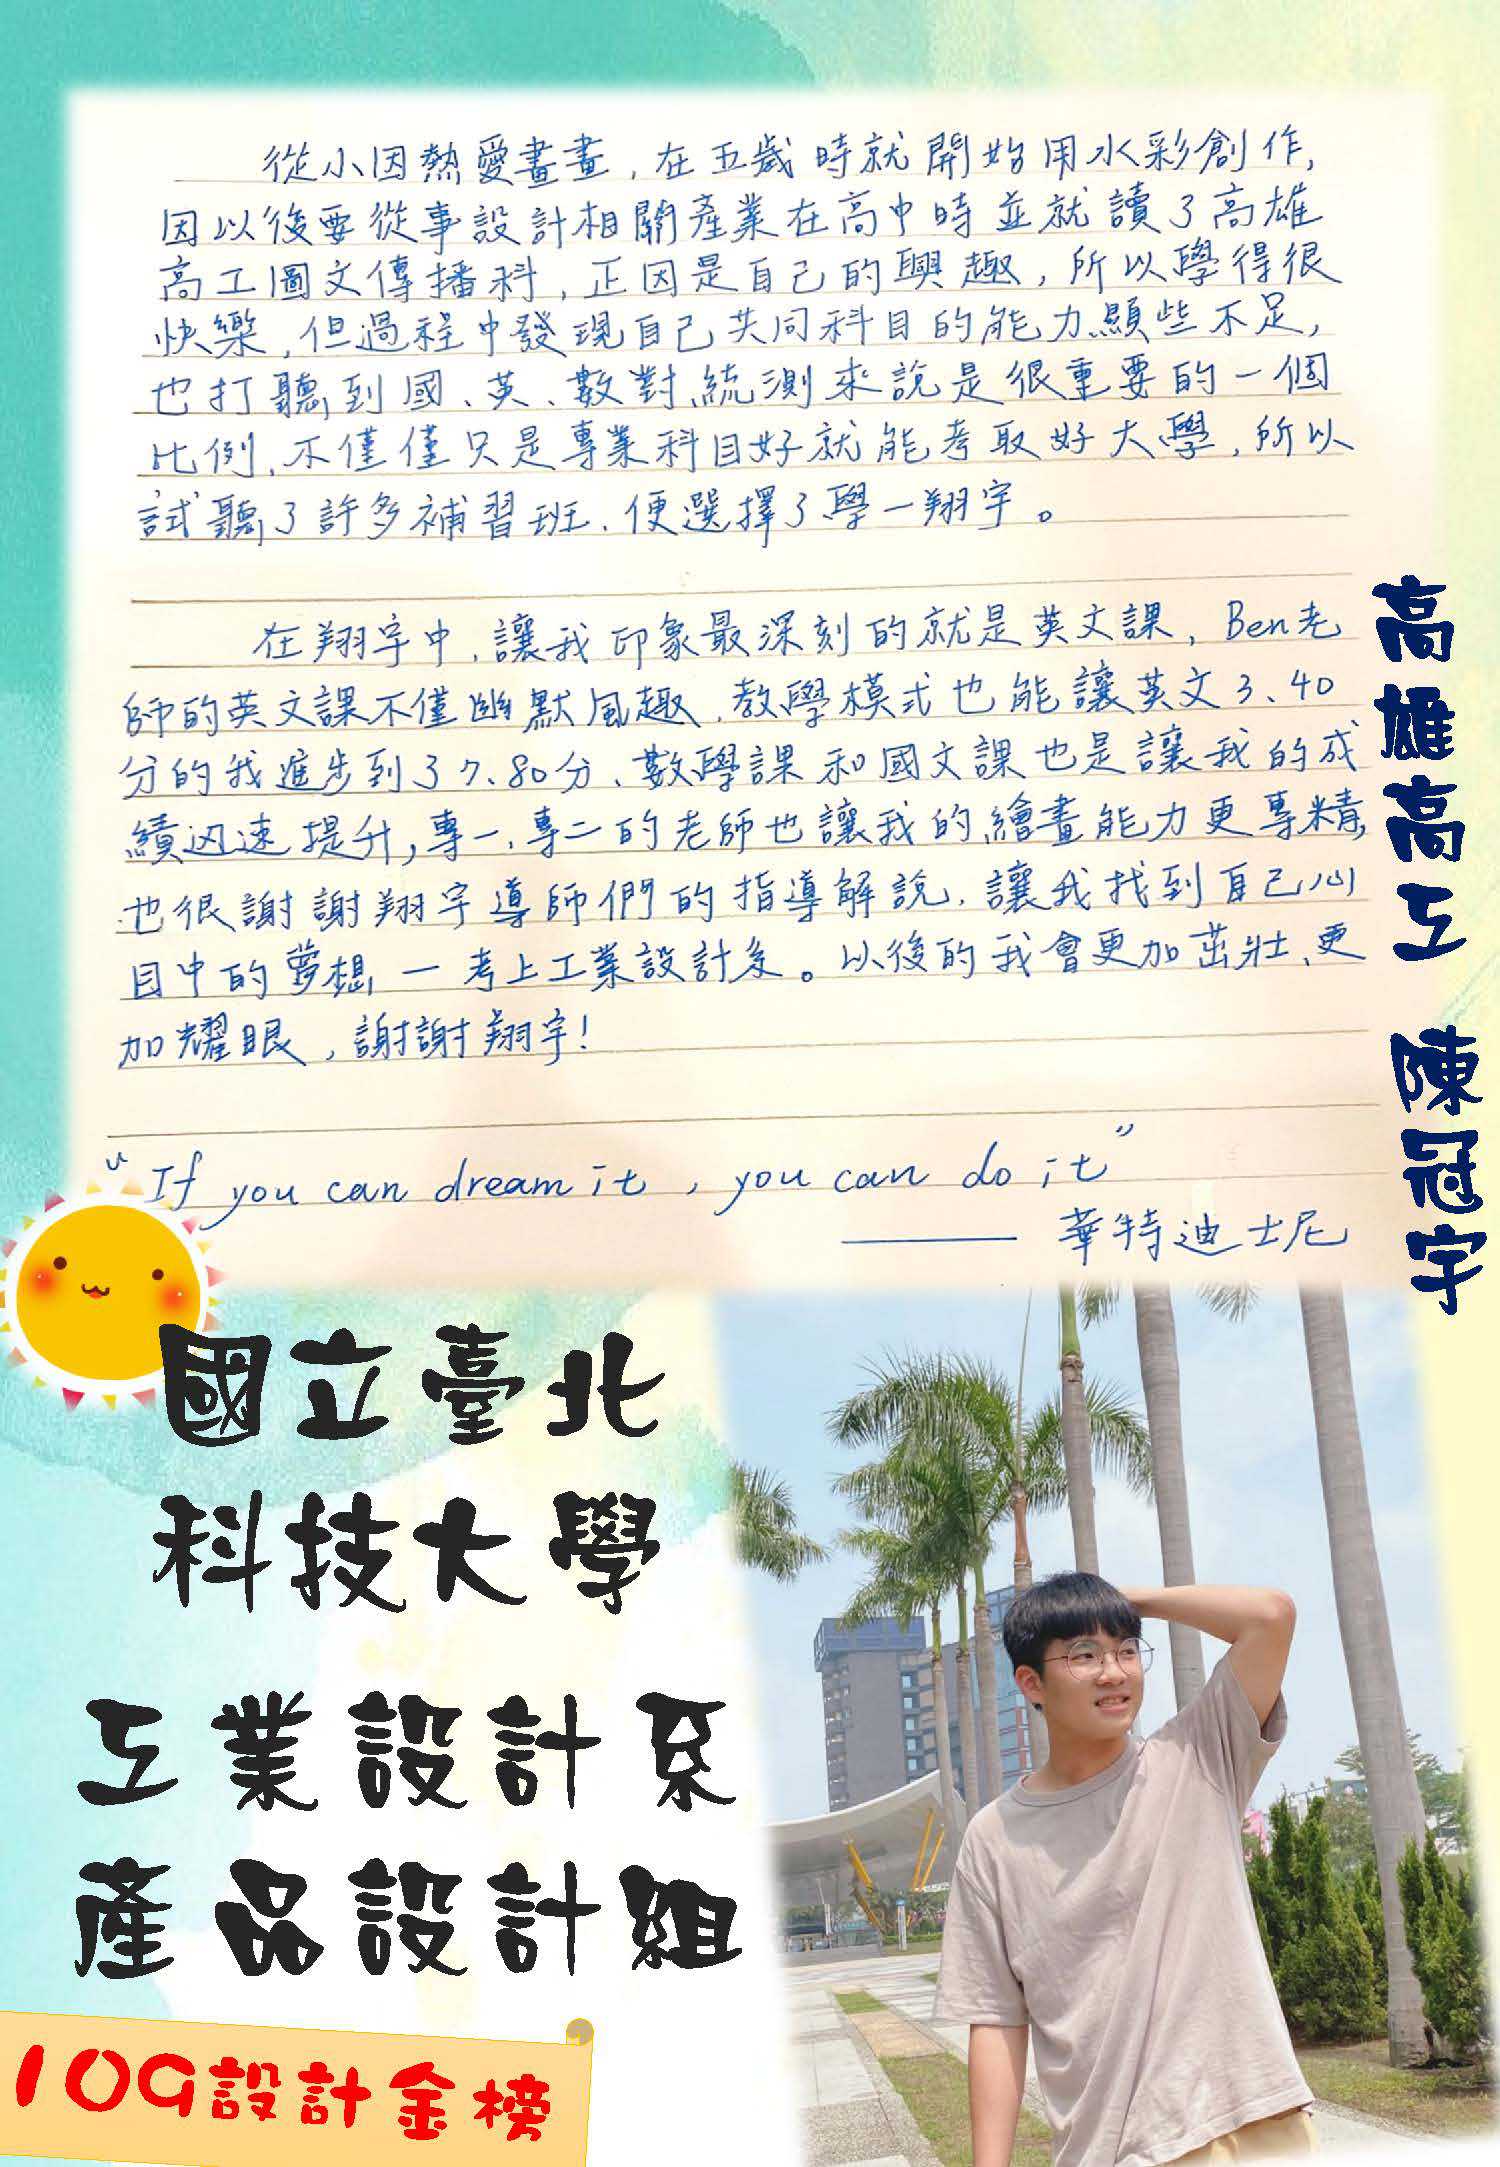 從小因熱愛畫畫,在五歲時就開始用水彩創作,
因以後要從事設計相關產業在高中時並就讀了高雄
高工圖文傳播科,正因是自己的興趣,所以學得很
快樂,但過程中發現自己共同科目的能力顯些不足,
也打聽到國、英、數對統測來說是很重要的一個
比例,不僅僅只是專業科目好就能考取好大學,所以
試聽了許多補習班,便選擇了學一翔宇。
在翔宇中,讓我印象最深刻的就是英文課,Ben老
師的英文課不僅幽默風趣,教學模式也能讓英文3、40
分的我進步到了7、80分、數學課和國文課也是讓我的成
績迅速提升,專一、專二的老師也讓我的繪畫能力更專精,
也很謝謝翔宇導師們的指導解說,讓我找到自己心
目中的夢想—考上工業設計系。以後的我會更加茁壯、更
加耀眼,謝謝翔宇!
"If you can dream it, you can do it"
—— 華特迪士尼
高雄高工 陳冠宇
國立臺北
科技大學
工業設計系
產品設計組
109設計金榜